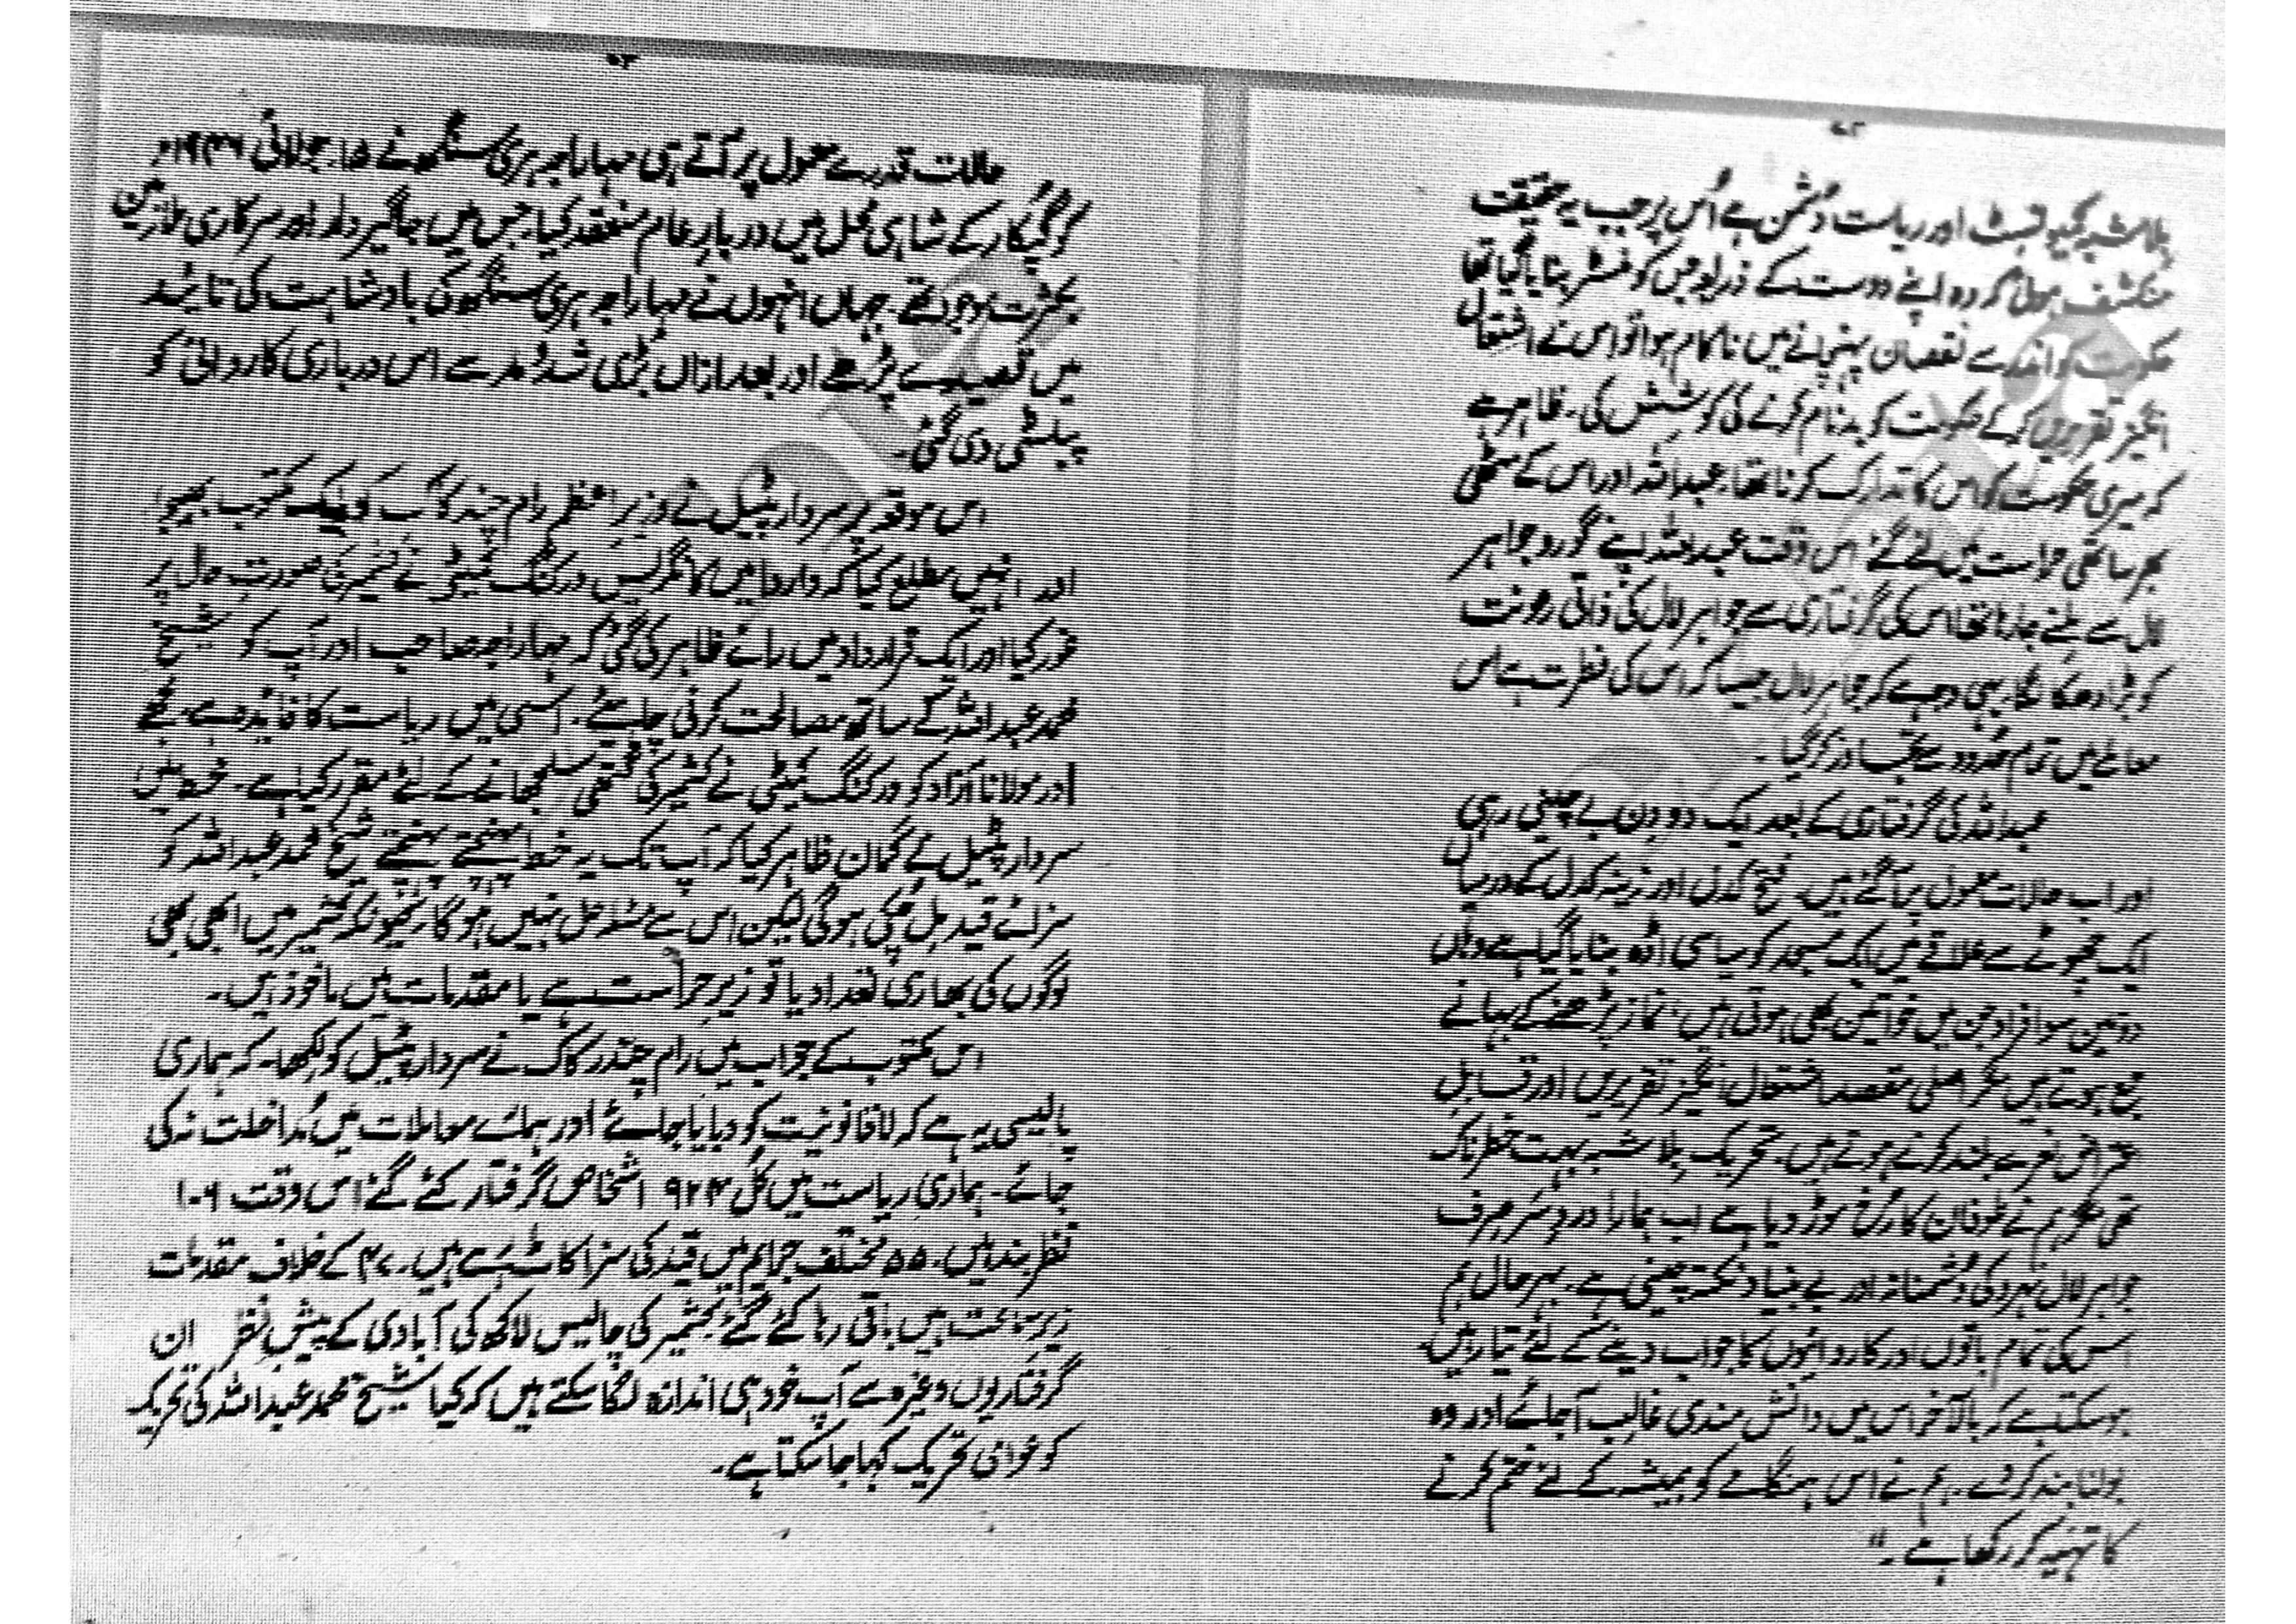 ۷۲
بلاشبہ کمیونسٹ اور ریاست دُشمن ہے اُس پر جب یہ حقیقت
منکشف ہوئی کہ وہ اپنے دوست کے ذریعہ جس کو منسٹر بنایا گیا تھا
حکومت کو اندر سے نقصان پہنچانے میں ناکام ہوا تو اس نے اشتعال
انگیز تقریریں کر کے حکومت کو بدنام کرنے کی کوشش کی۔ ظاہر ہے
کہ میری حکومت کو اس کا تدارک کرنا تھا۔ عبداللہ اور اس کے مٹھی
بھر ساتھی حراست میں لئے گئے اس وقت عبداللہ اپنے گورو جواہر
لال سے ملنے جا رہا تھا اس کی گرفتاری سے جواہر لال کی ذاتی رعونت
کو بڑا دھکا لگا۔ یہی وجہ ہے کہ جواہر لال جیسا کہ اس کی فطرت ہے اس
معاملے میں تمام حُدود سے تجاوز کر گیا۔
عبداللہ کی گرفتاری کے بعد ایک دو دن بے چینی رہی
اور اب حالات معمول پر آ گئے ہیں۔ فتح کدل اور زینہ کدل کے درمیان
ایک چھوٹے سے علاقے میں ایک مسجد کو سیاسی اڈہ بنایا گیا ہے وہاں
دو تین سو افراد جن میں خواتین بھی ہوتی ہیں، نماز پڑھنے کے بہانے
جمع ہوتے ہیں مگر اصلی مقصد اشتعال انگیز تقریریں اور قابلِ
اعتراض نعرے بلند کرنے ہوتے ہیں۔ تحریک بلاشبہ بہت خطرناک
تھی مگر ہم نے طوفان کا رُخ موڑ دیا ہے اب ہمارا دردِ سر صرف
جواہر لال نہرو کی دُشمنانہ اور بے بنیاد نکتہ چینی ہے۔ بہرحال ہم
اس کی تمام باتوں اور کاروائیوں کا جواب دینے کے لئے تیار ہیں۔
ہو سکتا ہے کہ بالآخر اس میں دانش مندی غالب آ جائے اور وہ
بولنا بند کر دے۔ ہم نے اس ہنگامے کو ہمیشہ کے لئے ختم کرنے
کا تہیہ کر رکھا ہے۔"
۷۳
حالات قدرے معمول پر آتے ہی مہاراجہ ہری سنگھ نے ۱۵۔ جولائی ۱۹۴۶ء
کو گپکار کے شاہی محل میں دربارِ عام منعقد کیا۔ جس میں جاگیردار اور سرکاری ملازمین
بکثرت موجود تھے۔ جہاں انہوں نے مہاراجہ ہری سنگھ کی بادشاہت کی تائید
میں قصیدے پڑھے اور بعد ازاں بڑی شدّ و مد سے اس درباری کاروائی کو
پبلسٹی دی گئی۔
اس موقعہ پر سردار پٹیل نے وزیرِ اعظم رام چندر کاک کو ایک مکتوب بھیجا
اور انہیں مطلع کیا کہ واردھا میں کانگریس ورکنگ کمیٹی نے کشمیر کی صورتِ حال پر
غور کیا اور ایک قرارداد میں رائے ظاہر کی گئی کہ مہاراجہ صاحب اور آپ کو شیخ
محمد عبداللہ کے ساتھ مصالحت کرنی چاہئے۔ اسی میں ریاست کا فائدہ ہے۔ مجھے
اور مولانا آزاد کو ورکنگ کمیٹی نے کشمیر کی گتھی سلجھانے کے لئے مقرر کیا ہے۔ خط میں
سردار پٹیل نے گمان ظاہر کیا کہ آپ تک یہ خط پہنچتے پہنچتے شیخ محمد عبداللہ کو
سزائے قید مل چکی ہوگی لیکن اس سے مسئلہ حل نہیں ہوگا۔ کیونکہ کشمیر میں ابھی بھی
لوگوں کی بھاری تعداد یا تو زیرِ حراست ہے یا مقدمات میں ماخوذ ہیں۔
اس مکتوب کے جواب میں رام چندر کاک نے سردار پٹیل کو لکھا۔ کہ ہماری
پالیسی یہ ہے کہ لاقانونیت کو دبایا جائے اور ہمارے معاملات میں مُداخلت نہ کی
جائے۔ ہماری ریاست میں کُل ۹۲۴ اشخاص گرفتار کئے گئے اس وقت ۱۰۹
نظر بند ہیں۔ ۵۵ مختلف جرائم میں قید کی سزا کاٹ رہے ہیں۔ کے خلاف مقدمات
زیرِ سماعت ہیں باقی رہا کئے گئے کشمیر کی چالیس لاکھ کی آبادی کے پیشِ نظر ان
گرفتاریوں وغیرہ سے آپ خود ہی اندازہ لگا سکتے ہیں کہ کیا شیخ محمد عبداللہ کی تحریک
کو عوامی تحریک کہا جا سکتا ہے۔